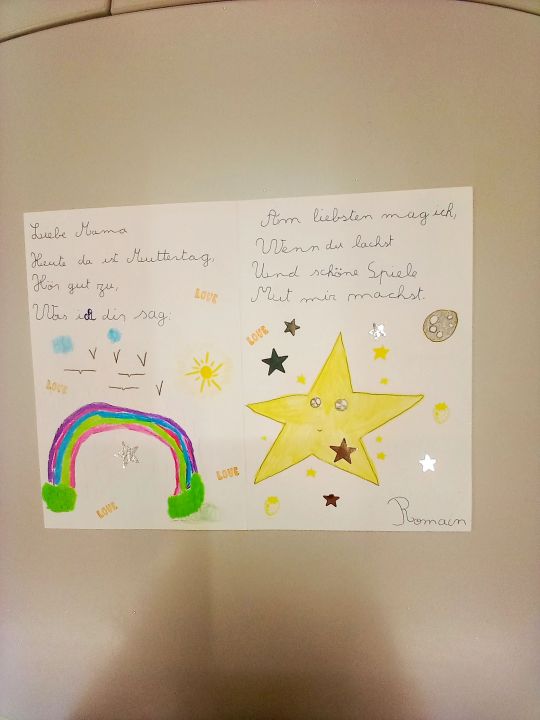 Liebe Mama
Heute da ist Muttertag,
Hör gut zu,
Was ich dir sag:
LOVE
LOVE
LOVE
Am liebsten mag ich,
Wenn du lachst
Und schöne Spiele
Mit mir machst.
LOVE
LOVE
Romain